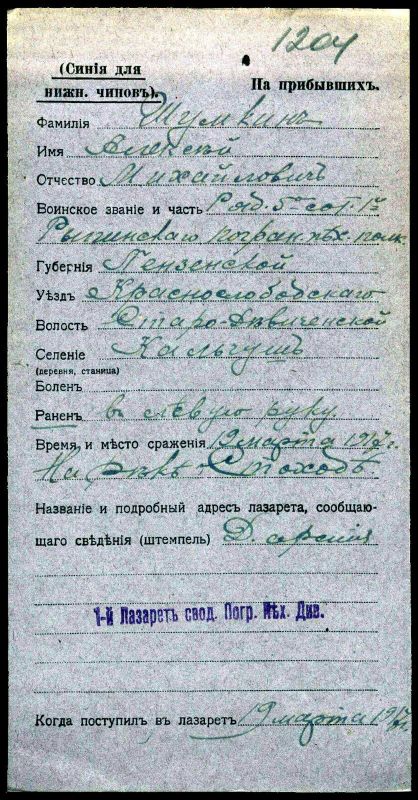 1204
(Синія для
нижн. чиновъ).
На прибывшихъ.
Фамилія Шумкинъ
Имя Алексѣй
Отчество Михайловичъ
Воинское званіе и часть Ряд. 5 сот. 1го
Рыпинскаго погран. пѣх. полк.
Губернія Пензенской
Уѣздъ Краснослободскаго
Волость Старо-Дѣвиченской
Селеніе Кальгушъ
(деревня, станица)
Боленъ
Раненъ въ лѣвую руку.
Время и мѣсто сраженія 19 марта 1917 г.
На рѣкѣ Стоходъ
Названіе и подробный адресъ лазарета, сообщаю-
щаго свѣдѣнія (штемпель) Д. армія
1-й Лазаретъ свод. Погр. Пѣх. Див.
Когда поступилъ въ лазаретъ 19 марта 1917 г.